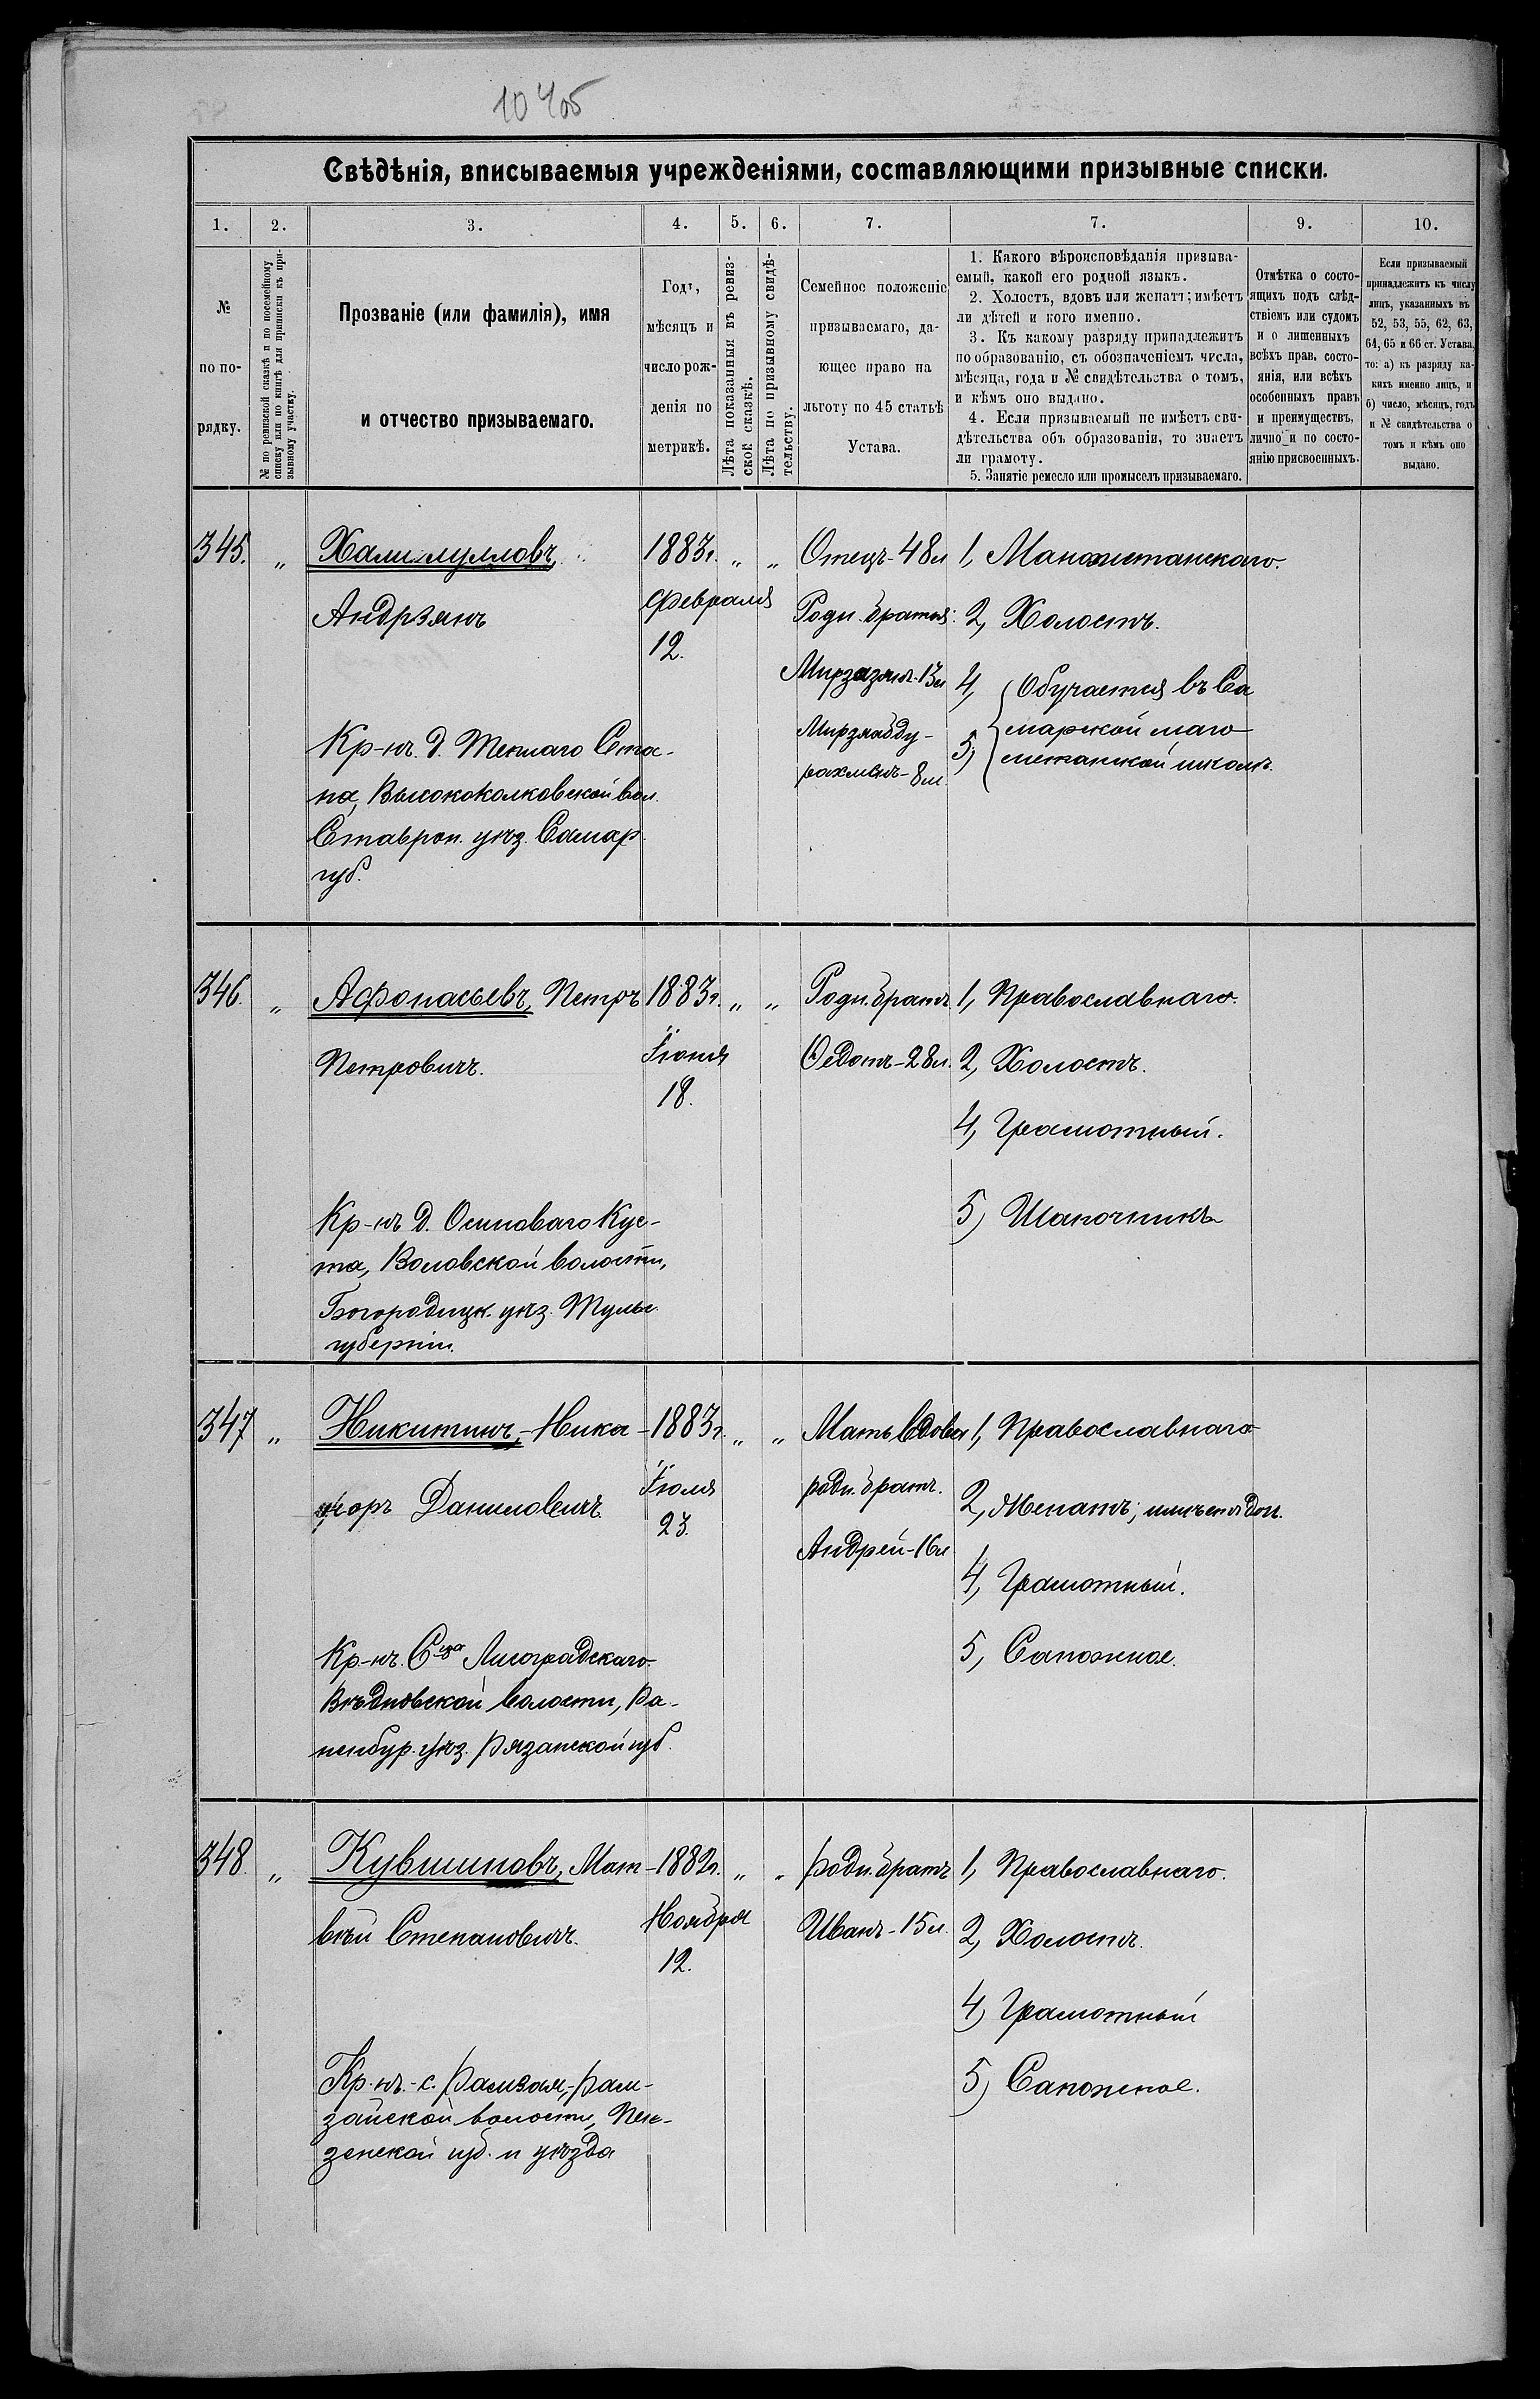 10 405
Свѣдѣнія, вписываемыя учрежденіями, составляющими призывные списки.
1. 2. 3. 4. 5. 6. 7. 7. 9. 10.
№
по по-
рядку.
№ по ревизской сказкѣ и по посемейному
списку или по книгѣ для приписки къ при-
зывному участку.
Прозваніе (или фамилія), имя
и отчество призываемаго.
Годъ,
мѣсяцъ и
число рож-
денія по
метрикѣ.
Лѣта показанныя въ ревиз-
ской сказкѣ.
Лѣта по призывному свидѣ-
тельству.
Семейное положеніе
призываемаго, да-
ющее право на
льготу по 45 статьѣ
Устава.
1. Какого вѣроисповѣданія призыва-
емый, какой его родной языкъ.
2. Холостъ, вдовъ или женатъ; имѣетъ
ли дѣтей и кого именно.
3. Къ какому разряду принадлежитъ
по образованію, съ обозначеніемъ числа,
мѣсяца, года и № свидѣтельства о томъ,
и кѣмъ оно выдано.
4. Если призываемый не имѣетъ сви-
дѣтельства объ образованіи, то знаетъ
ли грамоту.
5. Занятіе ремесло или промыселъ призываемаго.
Отмѣтка о состо-
ящихъ подъ слѣд-
ствіемъ или судомъ
и о лишенныхъ
всѣхъ прав, состо-
янія, или всѣхъ
особенныхъ правъ
и преимуществъ,
лично и по состо-
янію присвоенныхъ.
Если призываемый
принадлежитъ къ числу
лицъ, указанныхъ въ
52, 53, 55, 62, 63,
64, 65 и 66 ст. Устава,
то: а) къ разряду ка-
кихъ именно лицъ, и
б) число, мѣсяцъ, годъ
и № свидѣтельства о
томъ и кѣмъ оно
выдано.
345. „ Халимулловъ,
Андрзянъ
Кр-нъ. д. Теплаго Ста-
на, Высококолковской вол.
Ставроп. уѣз. Самар.
губ.
1883г.
Февраля
12.
„ „
Отецъ-48л
Родн. братья:
Мирзазянъ-13л
Мирзяабду-
рахманъ-8л.
1, Магометанскаго.
2, Холостъ.
4, 5, Обучается въ Са
марской маго
метанской школѣ.
346. „ Афонасьевъ, Петръ
Петровичъ.
Кр-нъ д. Осиноваго Кус-
та, Воловской волости,
Богородицк. уѣз. Тульс.
губерніи.
1883г.
Іюня
18.
„ „
Родн. братъ
Федотъ-28л.
1, Православнаго.
2, Холостъ.
4, Грамотный.
5) Шапочникъ
347 „ Никитинъ,-Ника-
норъ Даниловичъ.
Кр-нъ. С-ца Лисоградскаго
волости, Ра-
ненбур. уѣз. Рязанской губ.
1883г.
Іюля
23.
„ „
Мать вдова
родн. братъ.
Андрей-16л
1, Православнаго
2, Женатъ; имѣетъ доч.
4, Грамотный.
5, Сапожное.
348. „ Кувшиновъ, Мат-
вѣй Степановичъ.
Кр-нъ.-с. Рамзая,-Рам-
зайской волости, Пен-
зенской губ. и уѣзда
1882г.
Ноября
12.
„ „
Родн. братъ
Иванъ-15л.
1, Православнаго.
2, Холостъ.
4) Грамотный
5) Сапожное.